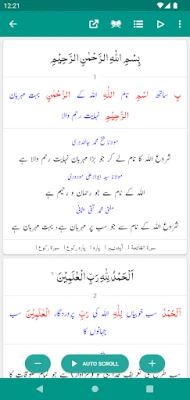 12:21
بِسْمِ اللهِ الرَّحْمٰنِ الرَّحِيْمِ
1
بِ ساتھ اسْمِ نام اللهِ اللہ کے الرَّحْمٰنِ بہت مہربان
الرَّحِيْمِ نہایت رحم والا
مولانا فتح محمد جالندہری
شروع اللہ کا نام لے کر جو بڑا مہربان نہایت رحم والا ہے
مولانا سید ابوالاعلی مودودی
اللہ کے نام سے جو رحمان و رحیم ہے
مفتی محمد تقی عثمانی
شروع اللہ کے نام سے جو سب پر مہربان ہے، بہت مہربان ہے
سورۃ الفاتحۃ ۱
اَلْحَمْدُ لِلّٰهِ رَبِّ الْعٰلَمِيْنَ
2
اَلْحَمْدُ سب خوبیاں لِلّٰهِ اللہ کی رَبِّ پروردگار الْعٰلَمِيْنَ سب
جہانوں کا
AUTO SCROLL